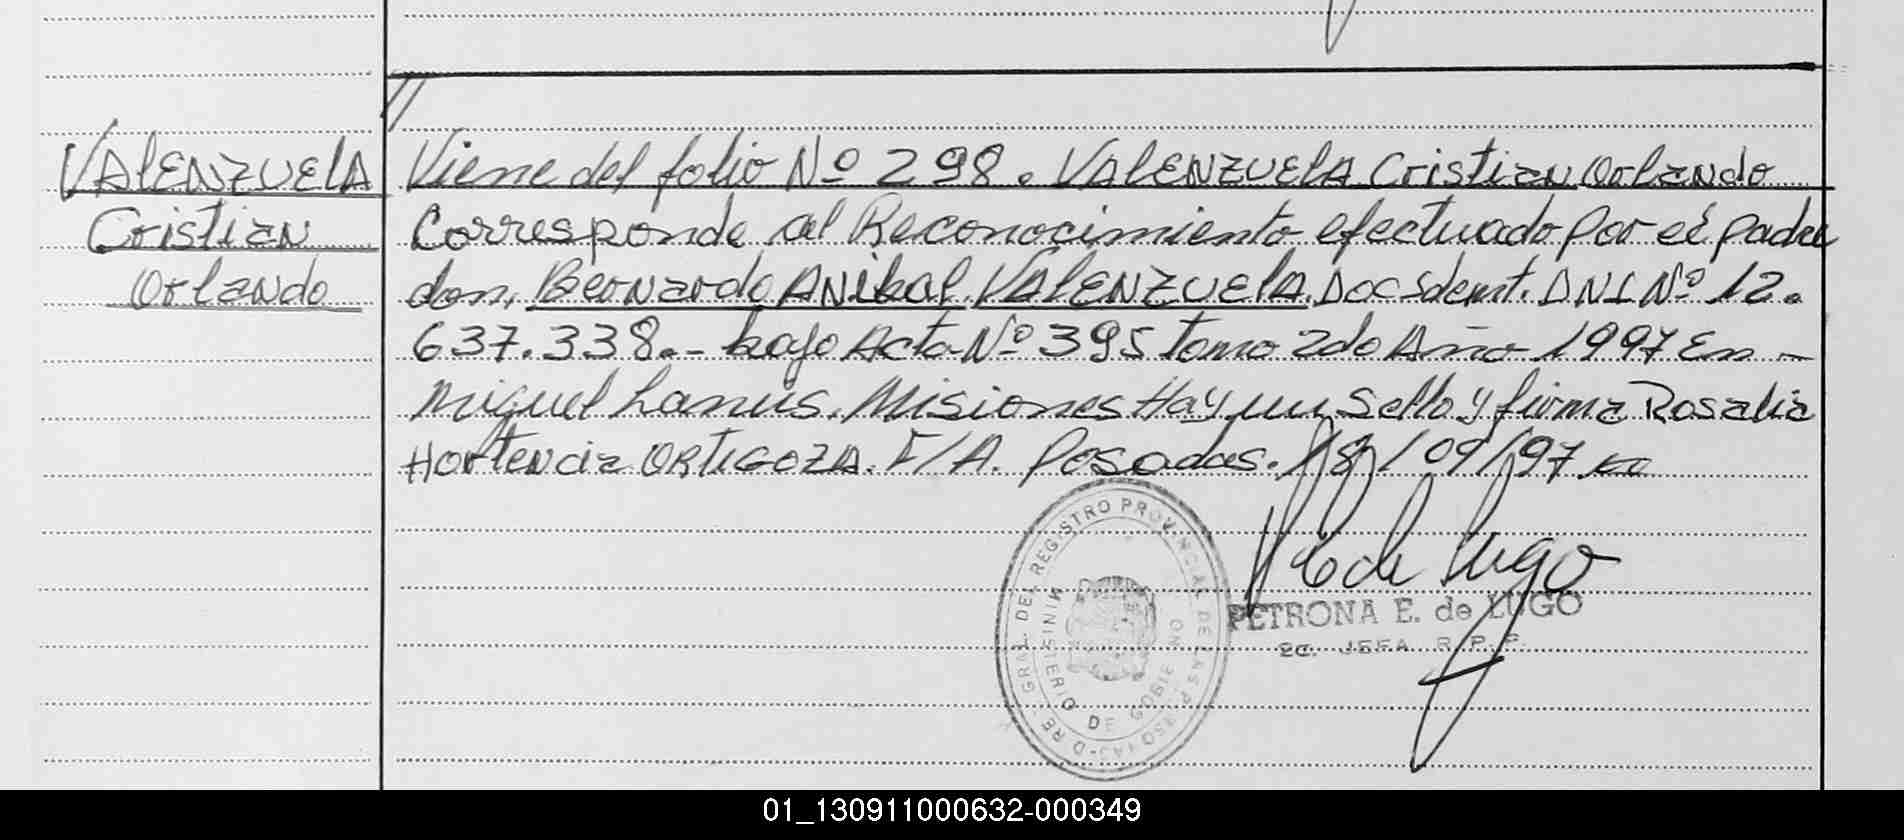 VALENZUELA
Cristian
Orlando
Viene del folio Nº 298. VALENZUELA Cristian Orlando
Corresponde al Reconocimiento efectuado por el padre
don, Bernardo ANibal VALENZUELA. Doc Ident. DNI Nº 12.
637.338.- bajo Acta Nº 395 tomo 2do Año 1997 En -
Miguel Lanus. Misiones Hay un Sello y firma Rosalia
Hortencia ORTIGOZA. F/A. Posadas. 18/09/97
REGISTRO PROVINCIAL DE LAS PERSONAS
MINISTERIO DE GOBIERNO
PETRONA E. de LUGO
2a. JEFA R.P.P.
01_130911000632-000349